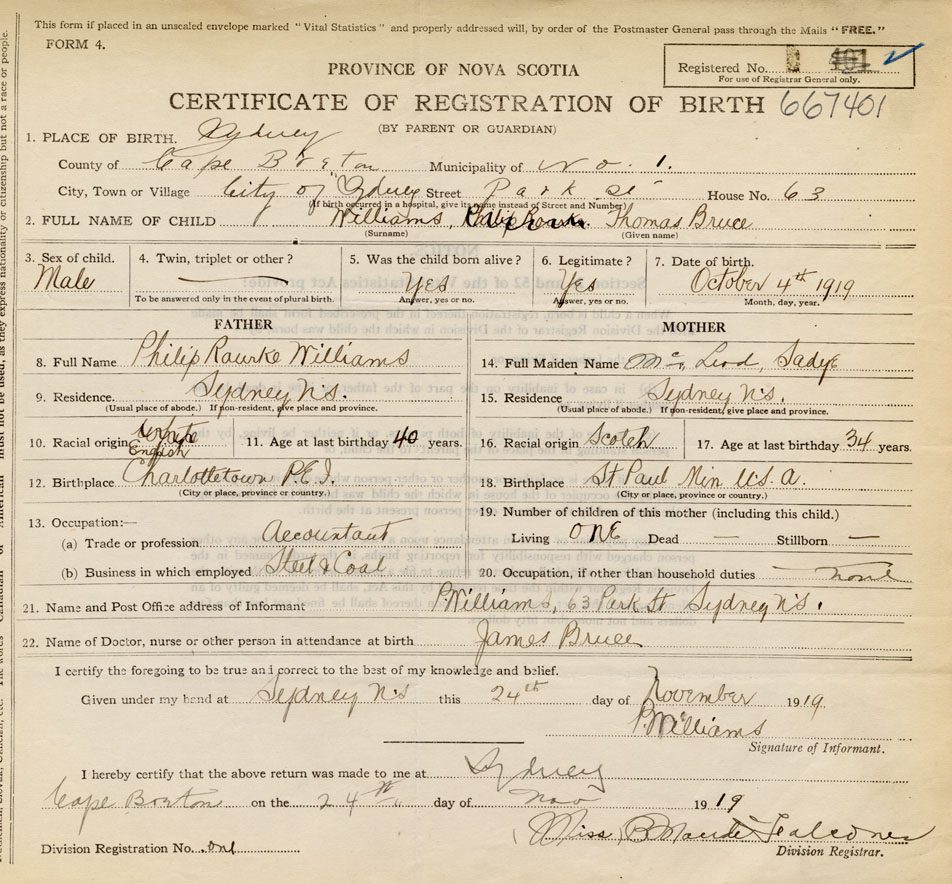 This form if placed in an unsealed envelope marked "Vital Statistics" and properly addressed will, by order of the Postmaster General pass through the Mails "FREE."
FORM 4.
Registered No. 401
For use of Registrar General only.
PROVINCE OF NOVA SCOTIA
CERTIFICATE OF REGISTRATION OF BIRTH 667401
(BY PARENT OR GUARDIAN)
1. PLACE OF BIRTH. Sydney
County of Cape Breton Municipality of No. 1.
City, Town or Village City of Sydney Street Park St House No. 63
(If birth occurred in a hospital, give its name instead of Street and Number)
2. FULL NAME OF CHILD Williams, Thomas Bruce
(Surname) (Given name)
3. Sex of child. 4. Twin, triplet or other? 5. Was the child born alive? 6. Legitimate? 7. Date of birth.
Male — Yes Yes October 4th 1919
To be answered only in the event of plural birth. Answer, yes or no. Answer, yes or no. Month, day, year.
FATHER
8. Full Name Philip Rourke Williams
9. Residence. Sydney N.S.
(Usual place of abode.) If non-resident, give place and province.
10. Racial origin White English 11. Age at last birthday 40 years.
12. Birthplace Charlottetown P.E.I.
(City or place, province or country.)
13. Occupation:—
(a) Trade or profession Accountant
(b) Business in which employed Steel & Coal
MOTHER
14. Full Maiden Name McLeod, Sadye
15. Residence Sydney N.S.
(Usual place of abode.) If non-resident, give place and province.
16. Racial origin Scotch 17. Age at last birthday 34 years.
18. Birthplace St Paul Min U.S.A.
(City or place, province or country.)
19. Number of children of this mother (including this child.)
Living ONE Dead — Stillborn —
20. Occupation, if other than household duties none
21. Name and Post Office address of Informant P Williams, 63 Park St Sydney N.S.
22. Name of Doctor, nurse or other person in attendance at birth James Bruce
I certify the foregoing to be true and correct to the best of my knowledge and belief.
Given under my hand at Sydney N.S this 24th day of November 1919.
P Williams
Signature of Informant.
I hereby certify that the above return was made to me at Sydney
Cape Breton on the 24th day of Nov 1919
Miss B Maude Falconer
Division Registration No. one Division Registrar.